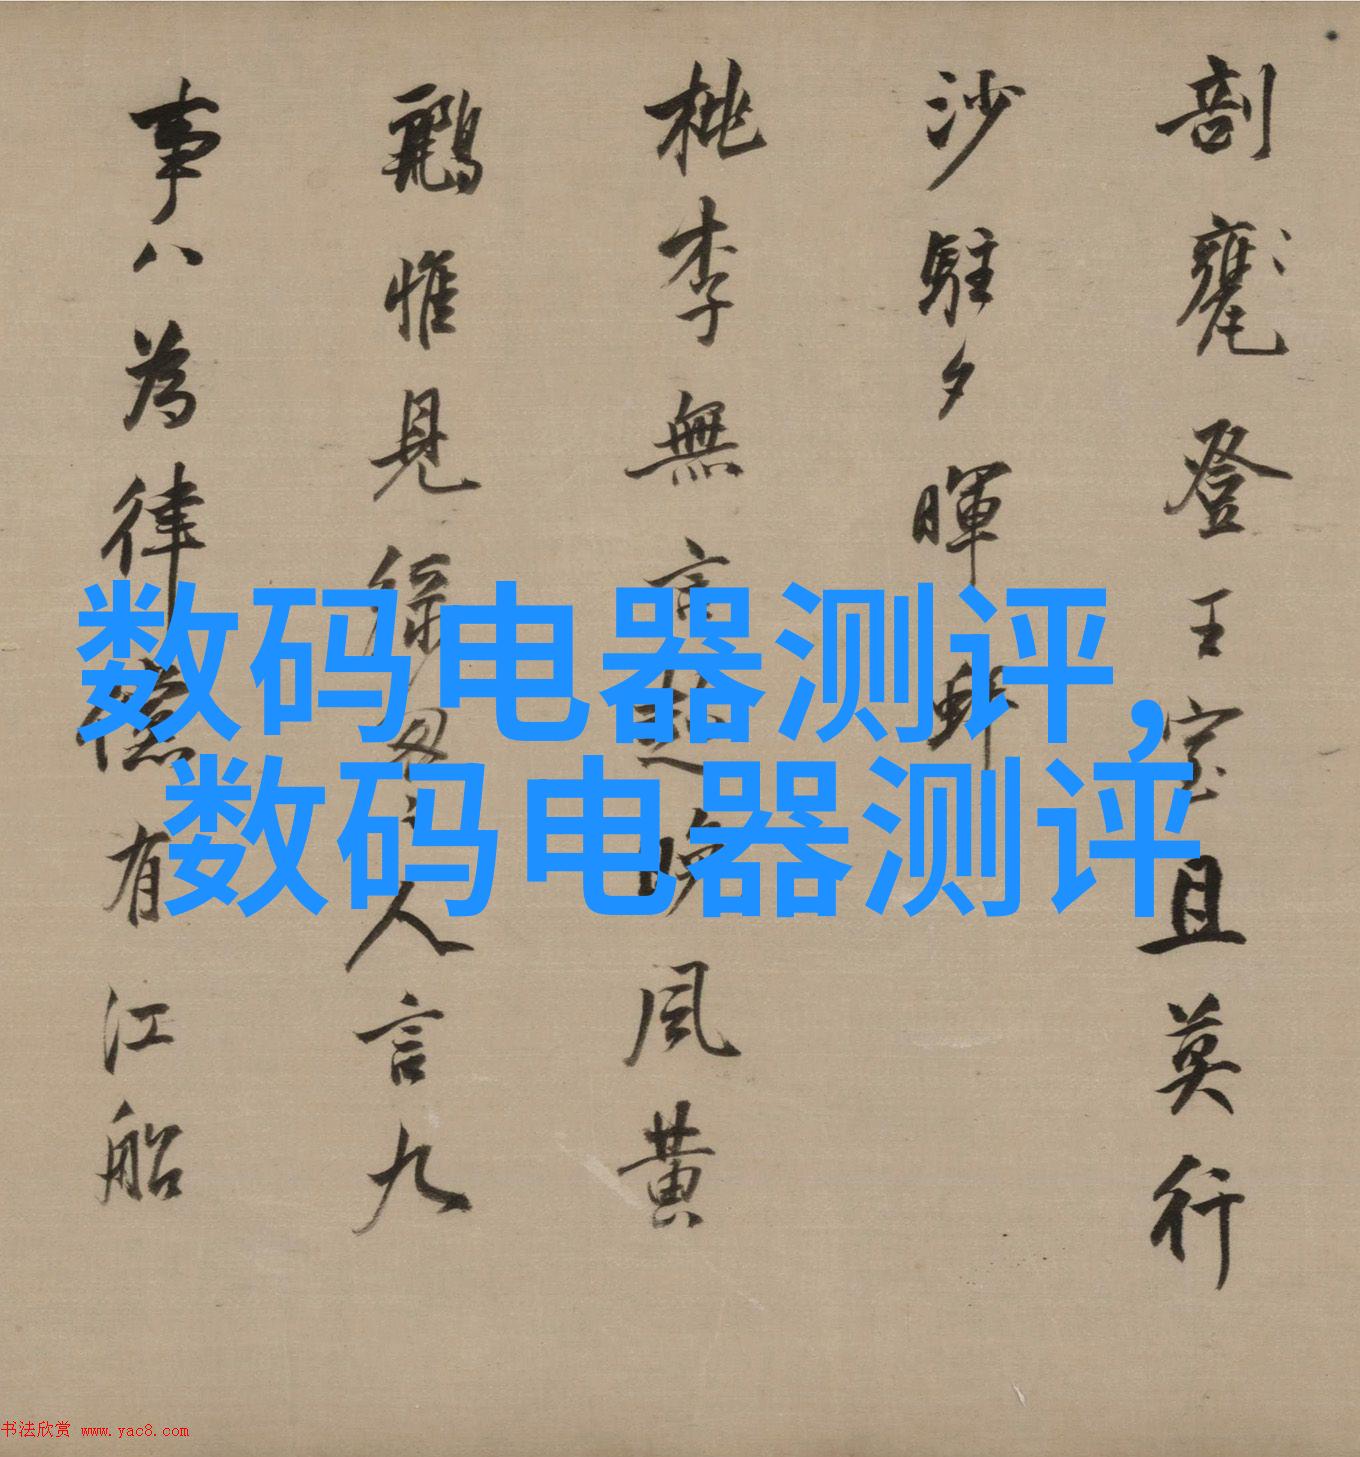 剖甕登王室且莫行
沙駐夕暉
桃李無言晚風黃
鸝惟見人言九
事八為律有江船
数码电器测评,
数码电器测评
书法欣赏 www.yac8.com